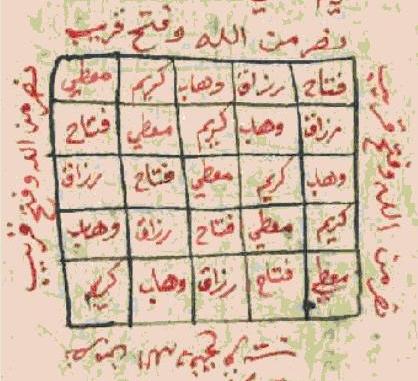 نصر من الله وفتح قريب
فتاح رزاق وهاب كريم معطي
رزاق وهاب كريم معطي فتاح
وهاب كريم معطي فتاح رزاق
كريم معطي فتاح رزاق وهاب
معطي فتاح رزاق وهاب كريم
نصر من الله وفتح قريب
نصر من الله وفتح قريب